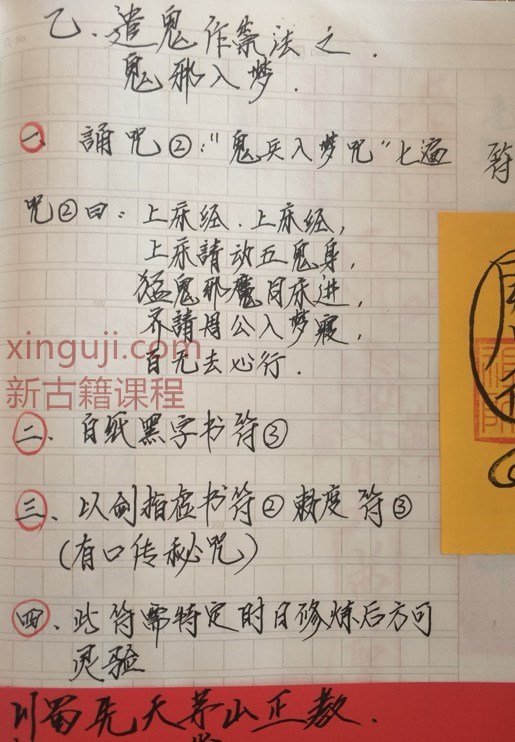 乙、造鬼作祟法之.
鬼邪入梦.
一、誦咒②:"鬼兵入梦咒"七遍
符
咒②曰:上床经.上床经,
上床請动五鬼身,
猛鬼邪魔同床进,
不請周公入梦寢,
百无去必行.
xinguji.com
新古籍课程
二、白纸黑字书符③
三、以劍指虚书符②敕度符③
(有口传秘咒)
四、此符需特定时日修炼后方可
灵验
川蜀先天茅山正教.